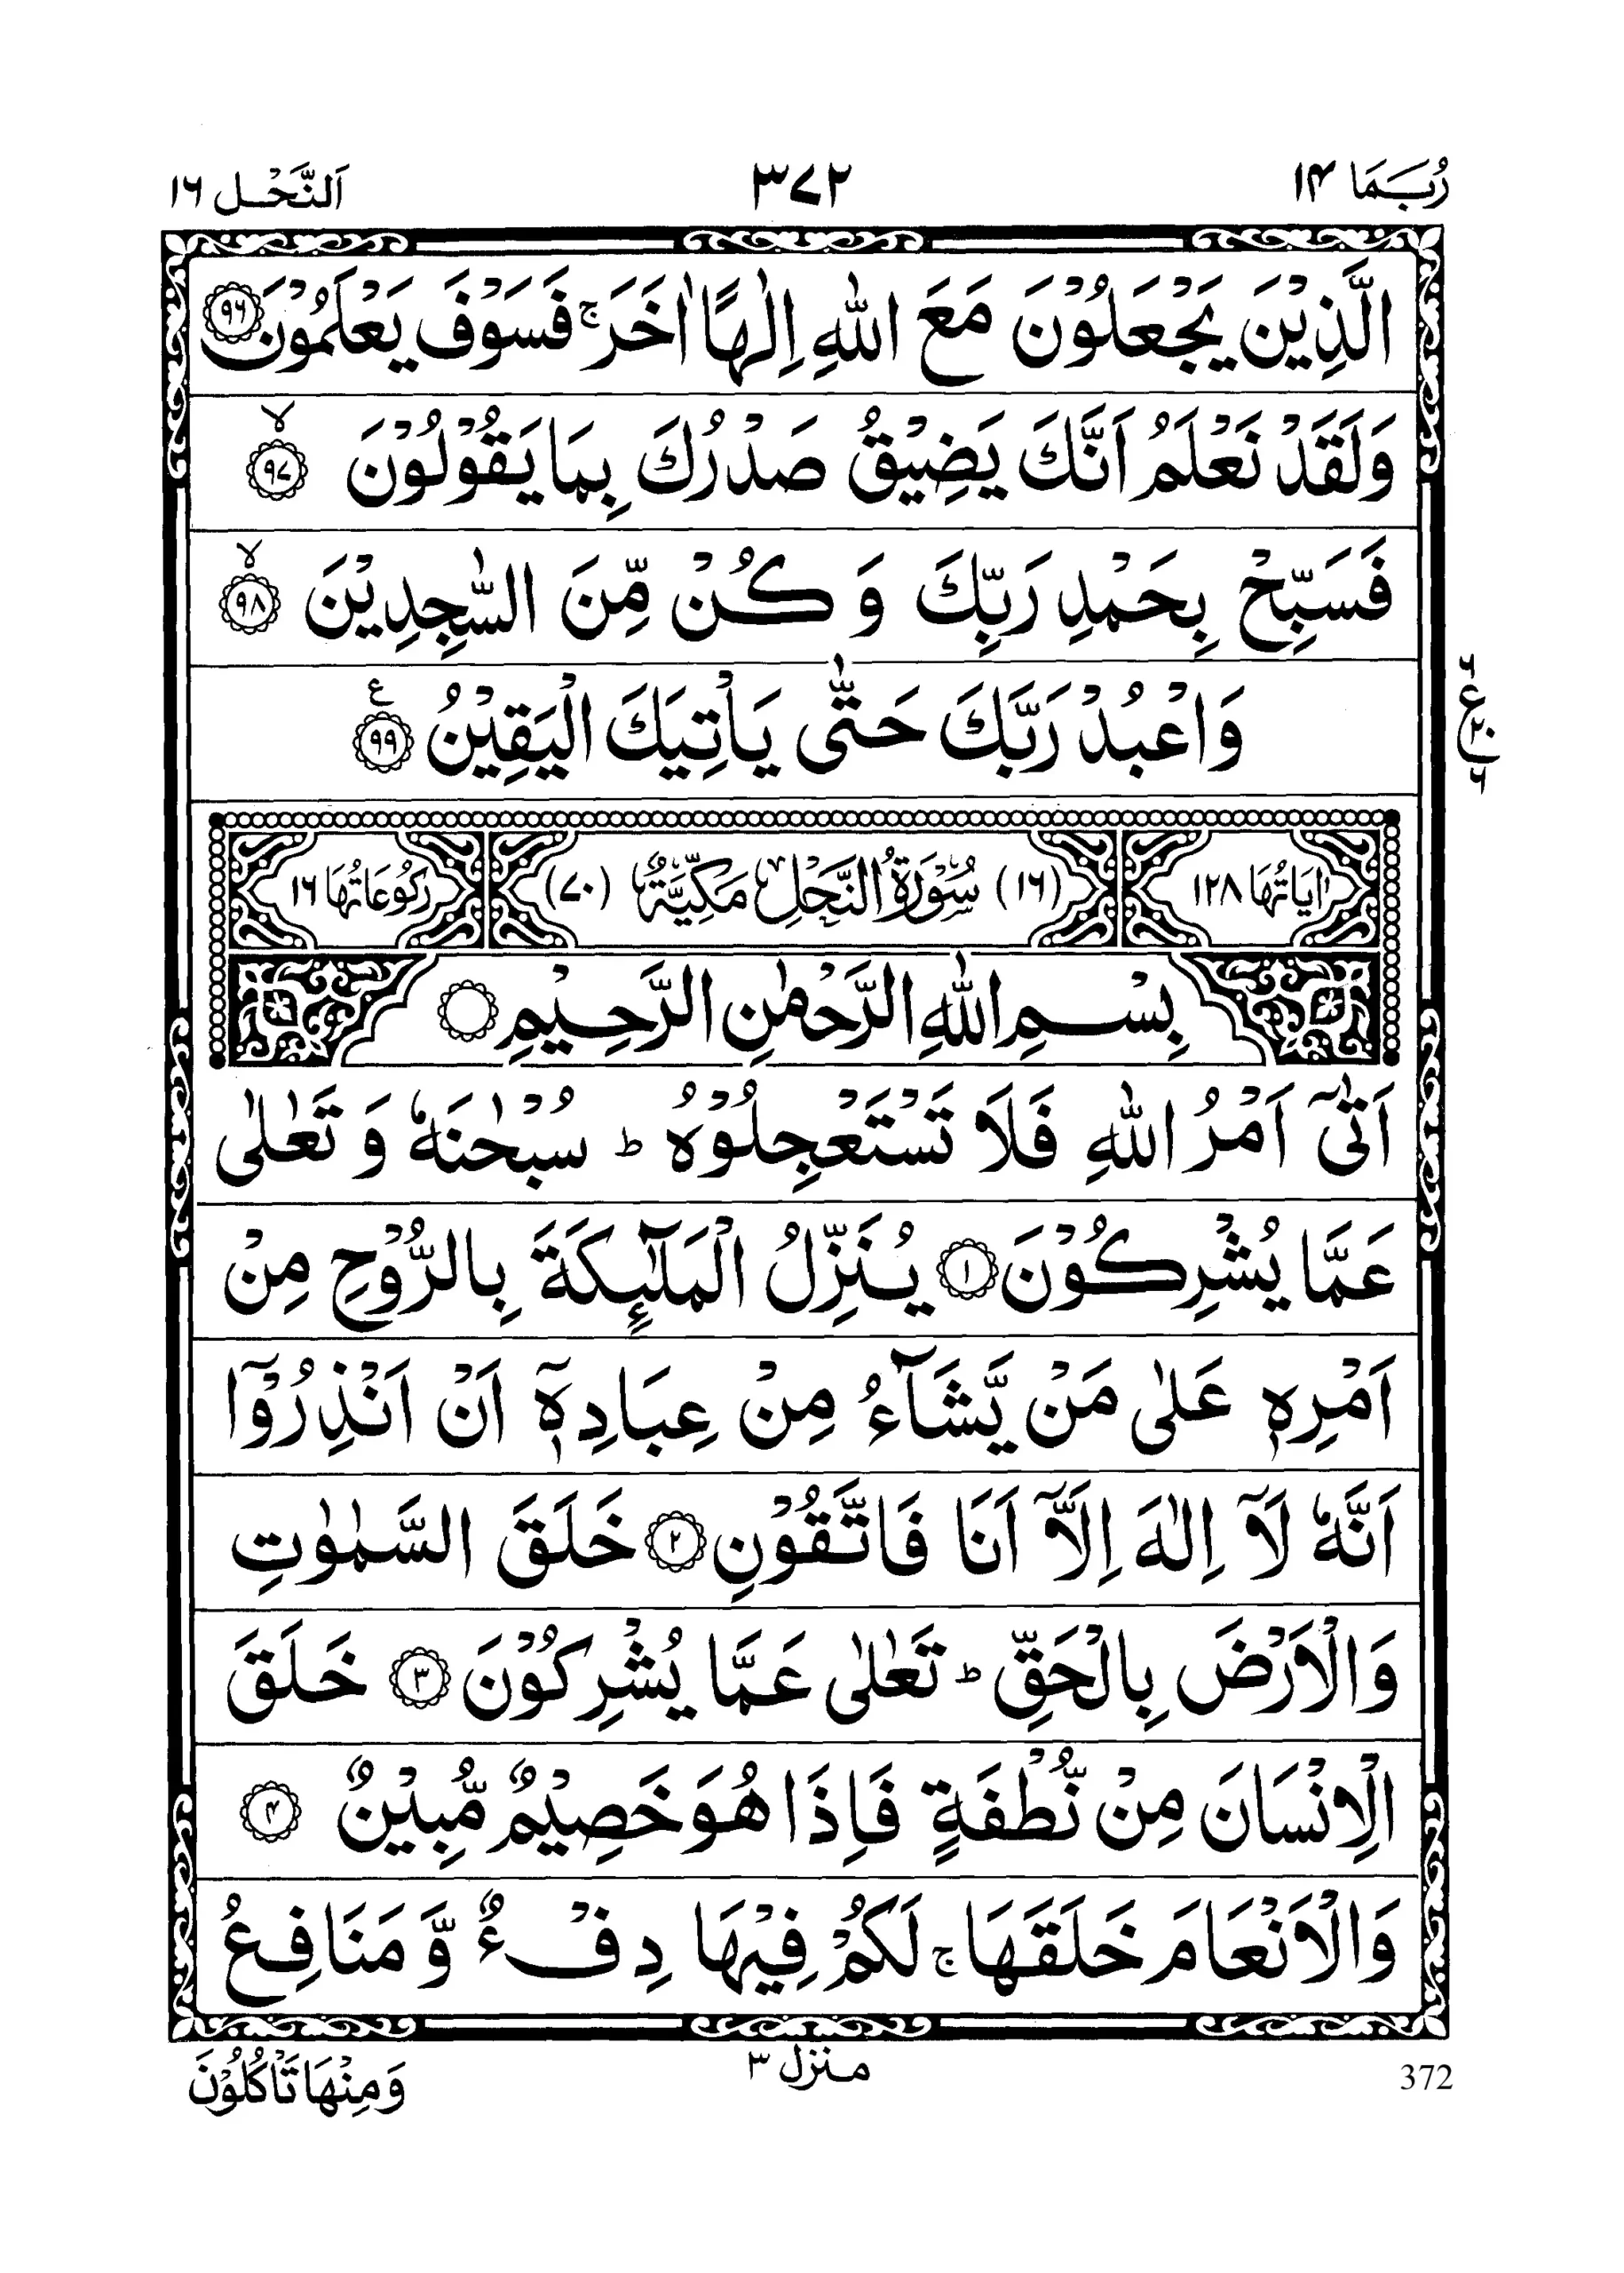 رُبَمَا ۱۴
۳۷۲
اَلنَّحْل ۱۶
الَّذِيْنَ يَجْعَلُوْنَ مَعَ اللّٰهِ اِلٰهًا اٰخَرَ ۚ فَسَوْفَ يَعْلَمُوْنَ ۹۶
وَلَقَدْ نَعْلَمُ اَنَّكَ يَضِيْقُ صَدْرُكَ بِمَا يَقُوْلُوْنَ ۙ ۹۷
فَسَبِّحْ بِحَمْدِ رَبِّكَ وَ كُنْ مِّنَ السّٰجِدِيْنَ ۙ ۹۸
وَاعْبُدْ رَبَّكَ حَتّٰى يَاْتِيَكَ الْيَقِيْنُ ع ۹۹
۶ ع ۲۰ ۶
اٰيَاتُهَا ۱۲۸ (۱۶) سُوْرَةُ النَّحْلِ مَكِّيَّةٌ (۷۰) رُكُوْعَاتُهَا ۱۶
بِسْمِ اللّٰهِ الرَّحْمٰنِ الرَّحِيْمِ
اَتٰۤى اَمْرُ اللّٰهِ فَلَا تَسْتَعْجِلُوْهُ ؕ سُبْحٰنَهٗ وَ تَعٰلٰى
عَمَّا يُشْرِكُوْنَ ۱ يُنَزِّلُ الْمَلٰٓئِكَةَ بِالرُّوْحِ مِنْ
اَمْرِهٖ عَلٰى مَنْ يَّشَآءُ مِنْ عِبَادِهٖۤ اَنْ اَنْذِرُوْۤا
اَنَّهٗ لَاۤ اِلٰهَ اِلَّاۤ اَنَا فَاتَّقُوْنِ ۲ خَلَقَ السَّمٰوٰتِ
وَالْاَرْضَ بِالْحَقِّ ؕ تَعٰلٰى عَمَّا يُشْرِكُوْنَ ۳ خَلَقَ
الْاِنْسَانَ مِنْ نُّطْفَةٍ فَاِذَا هُوَ خَصِيْمٌ مُّبِيْنٌ ۴
وَالْاَنْعَامَ خَلَقَهَا ۚ لَكُمْ فِيْهَا دِفْءٌ وَّ مَنَافِعُ
وَمِنْهَا تَاْكُلُوْنَ
منزل ۳
372